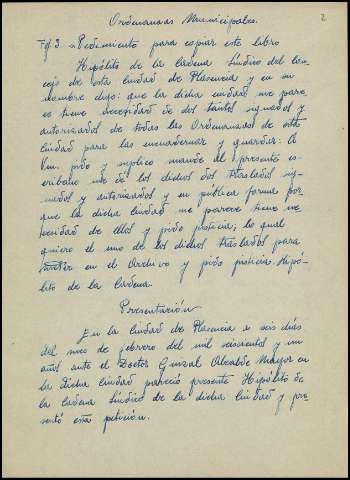 Ordenanzas Municipales.
2
Fol 3 = Pedimento para copiar este libro
Hipólito de la Cadena Síndico del Con-
cejo de esta Ciudad de Plasencia y en su
nombre digo: que la dicha ciudad me pare-
ce tiene necesidad de dos tantos signados y
autorizados de todas las Ordenanzas de esta
Ciudad para las encuadernar y guardar. A
Vm. pido y suplico mande al presente es-
cribano me dé los dichos dos traslados sig-
nados y autorizados y en pública forma por
que la dicha Ciudad me parece tiene ne-
cesidad de ellos y pido justicia; lo cual
quiero el uno de los dichos traslados para
en el Archivo y pido justicia. Hipó-
lito de la Cadena.
Presentación
En la Ciudad de Plasencia a seis días
del mes de febrero del mil seiscientos y un
años ante el Doctor Alcalde Mayor en
la dicha Ciudad pareció presente Hipólito de
la Cadena Síndico de la dicha Ciudad y pre-
sentó esta petición.